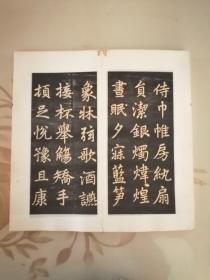 侍巾帷房紈扇
員潔銀燭煒煌
晝眠夕寐藍笋
象牀弦歌酒讌
接杯舉觴矯手
頓足悅豫且康